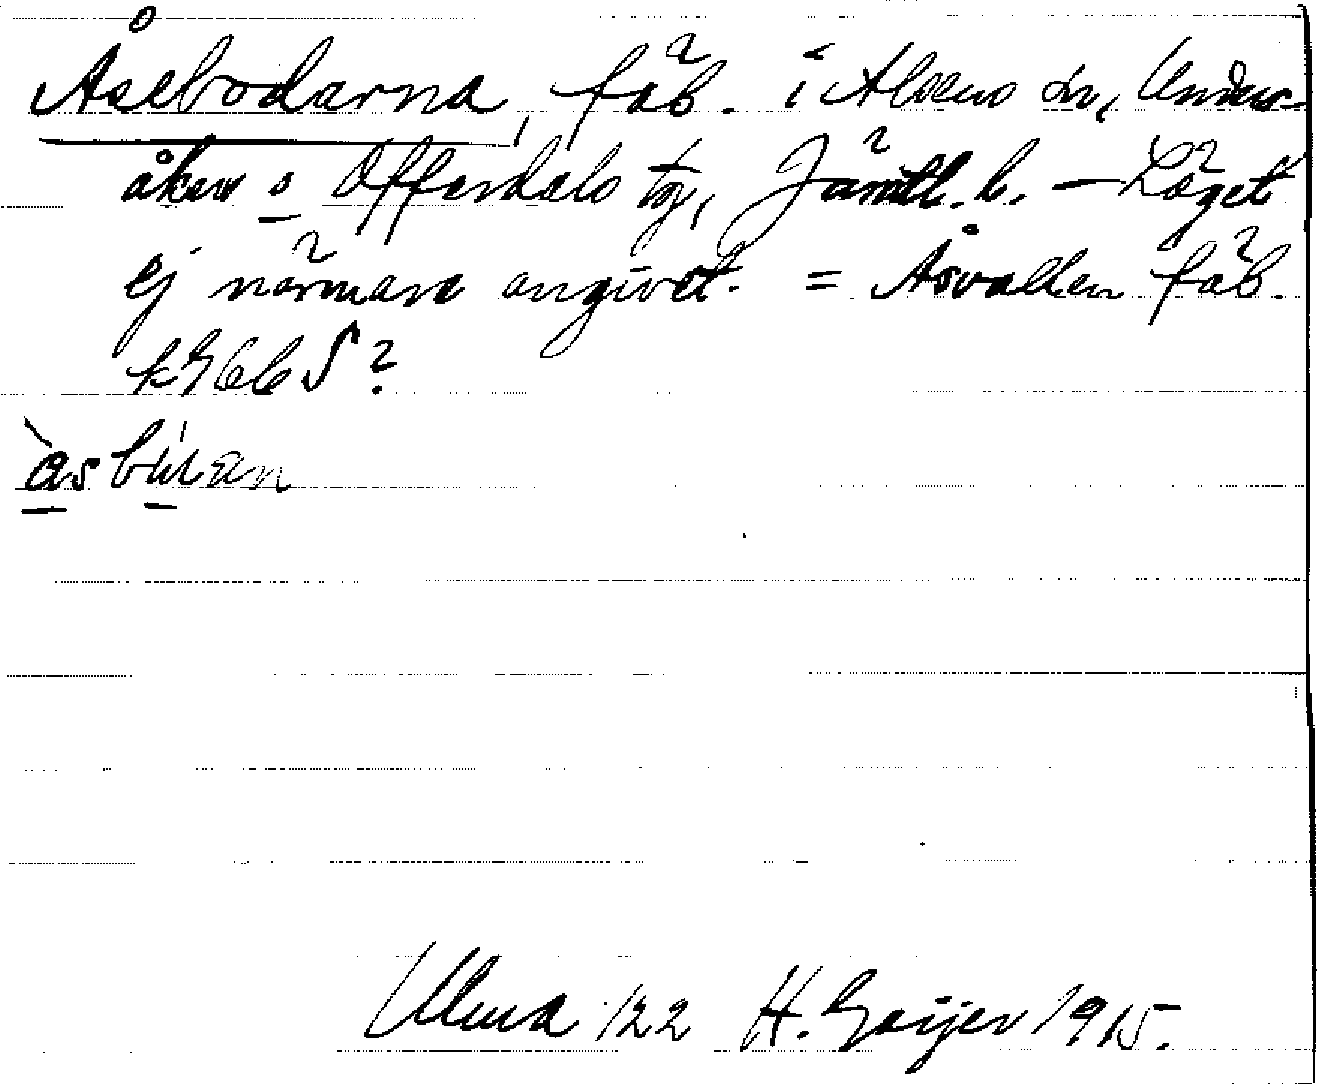 Åsebodarna, fäb. i Alsens sn, Under-
åkers o Offerdals tg, Jämtl. l. — Läget
ej närmare angivet. = Åsvallen fäb.
k766S?
àsbúan
Ulma 122 H. Geijer 1915.